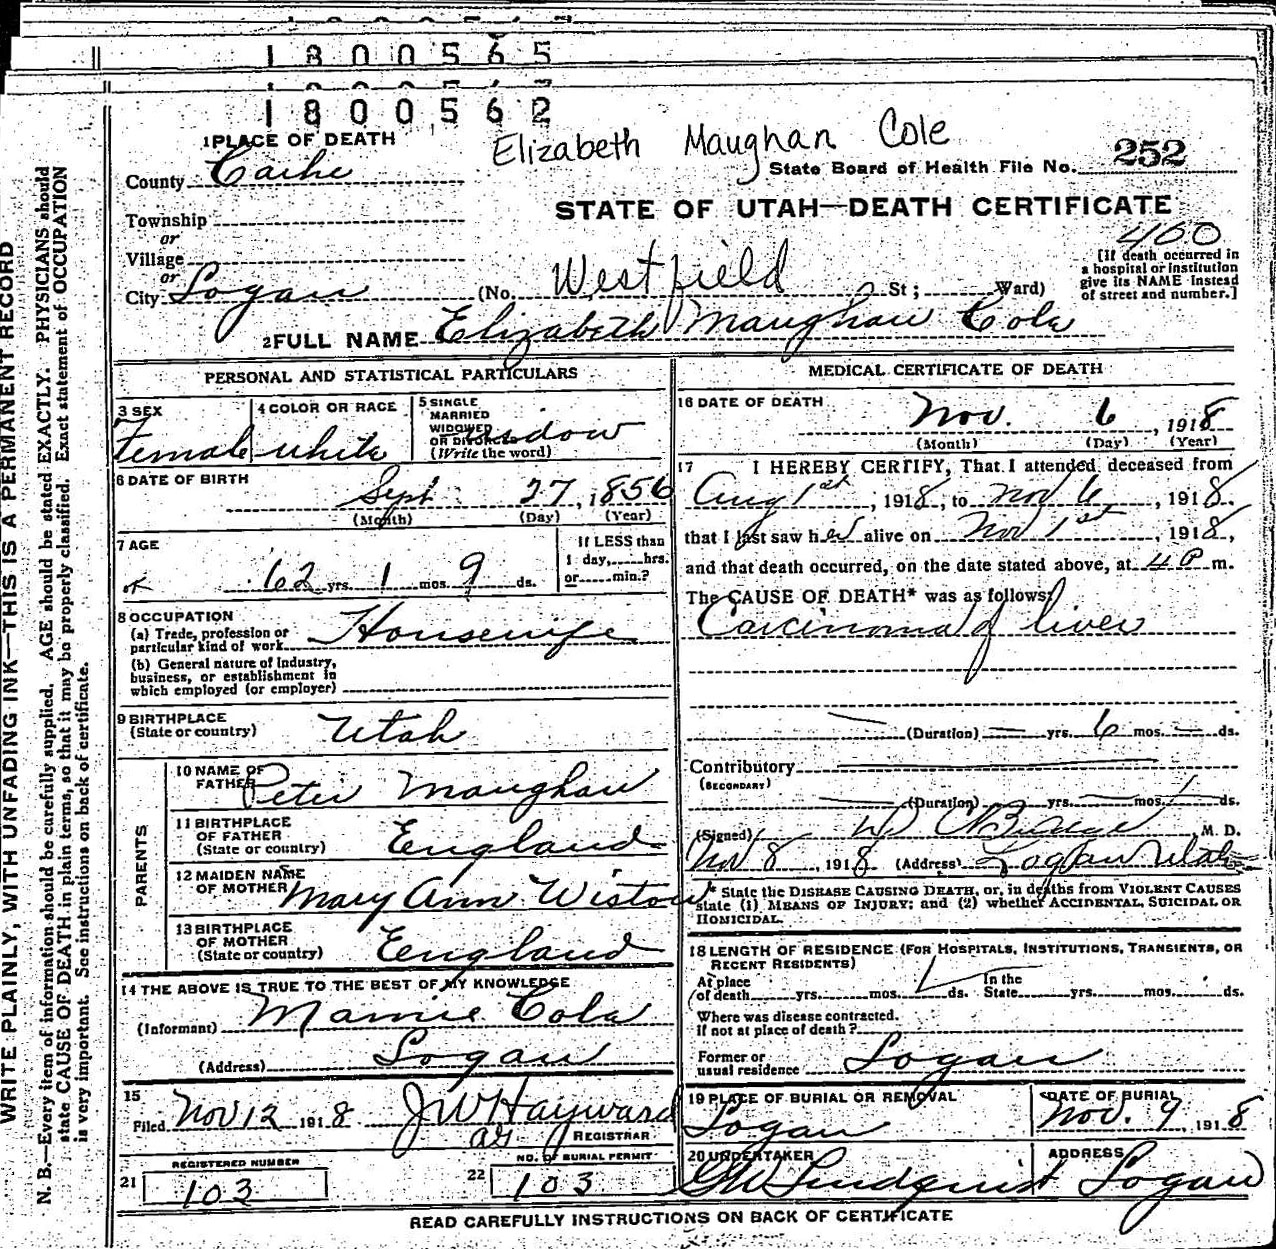 1800565
1800562
1 PLACE OF DEATH
Elizabeth Maughan Cole
State Board of Health File No. 252
County Cache
STATE OF UTAH—DEATH CERTIFICATE
Township
or
400
Village
or
[If death occurred in a hospital or institution give its NAME instead of street and number.]
City Logan (No. Westfield St; Ward)
2 FULL NAME Elizabeth Maughan Cole
PERSONAL AND STATISTICAL PARTICULARS
3 SEX Female
4 COLOR OR RACE white
5 SINGLE MARRIED WIDOWED OR DIVORCED (Write the word) Widow
6 DATE OF BIRTH Sept 27, 1856
(Month) (Day) (Year)
7 AGE 62 yrs. 1 mos. 9 ds.
If LESS than 1 day, hrs. or min.?
8 OCCUPATION
(a) Trade, profession or particular kind of work Housewife
(b) General nature of industry, business, or establishment in which employed (or employer)
9 BIRTHPLACE (State or country) Utah
PARENTS
10 NAME OF FATHER Peter Maughan
11 BIRTHPLACE OF FATHER (State or country) England
12 MAIDEN NAME OF MOTHER Mary Ann Weston
13 BIRTHPLACE OF MOTHER (State or country) England
14 THE ABOVE IS TRUE TO THE BEST OF MY KNOWLEDGE
(Informant) Mamie Cole
(Address) Logan
15 Filed Nov 12 1918 J W Hayward
REGISTRAR
REGISTERED NUMBER
21 103
NO. OF BURIAL PERMIT
22 103
MEDICAL CERTIFICATE OF DEATH
16 DATE OF DEATH Nov. 6, 1918
(Month) (Day) (Year)
17 I HEREBY CERTIFY, That I attended deceased from
Aug 1st, 1918, to Nov 6, 1918.
that I last saw her alive on Nov 1st, 1918,
and that death occurred, on the date stated above, at 4 P m.
The CAUSE OF DEATH* was as follows:
Carcinoma of liver
(Duration) yrs. 6 mos. ds.
Contributory
(SECONDARY)
(Duration) yrs. mos. ds.
(Signed) M. D.
Nov 8, 1918 (Address) Logan Utah
* State the DISEASE CAUSING DEATH, or, in deaths from VIOLENT CAUSES
state (1) MEANS OF INJURY; and (2) whether ACCIDENTAL, SUICIDAL OR
HOMICIDAL.
18 LENGTH OF RESIDENCE (FOR HOSPITALS, INSTITUTIONS, TRANSIENTS, OR
RECENT RESIDENTS)
At place of death yrs. mos. ds. In the State yrs. mos. ds.
Where was disease contracted, if not at place of death?
Former or usual residence Logan
19 PLACE OF BURIAL OR REMOVAL Logan
DATE OF BURIAL Nov. 9, 1918
20 UNDERTAKER GW Lindquist
ADDRESS Logan
READ CAREFULLY INSTRUCTIONS ON BACK OF CERTIFICATE
WRITE PLAINLY, WITH UNFADING INK—THIS IS A PERMANENT RECORD
N. B.—Every item of information should be carefully supplied. AGE should be stated EXACTLY. PHYSICIANS should
state CAUSE OF DEATH in plain terms, so that it may be properly classified. Exact statement of OCCUPATION
is very important. See instructions on back of certificate.